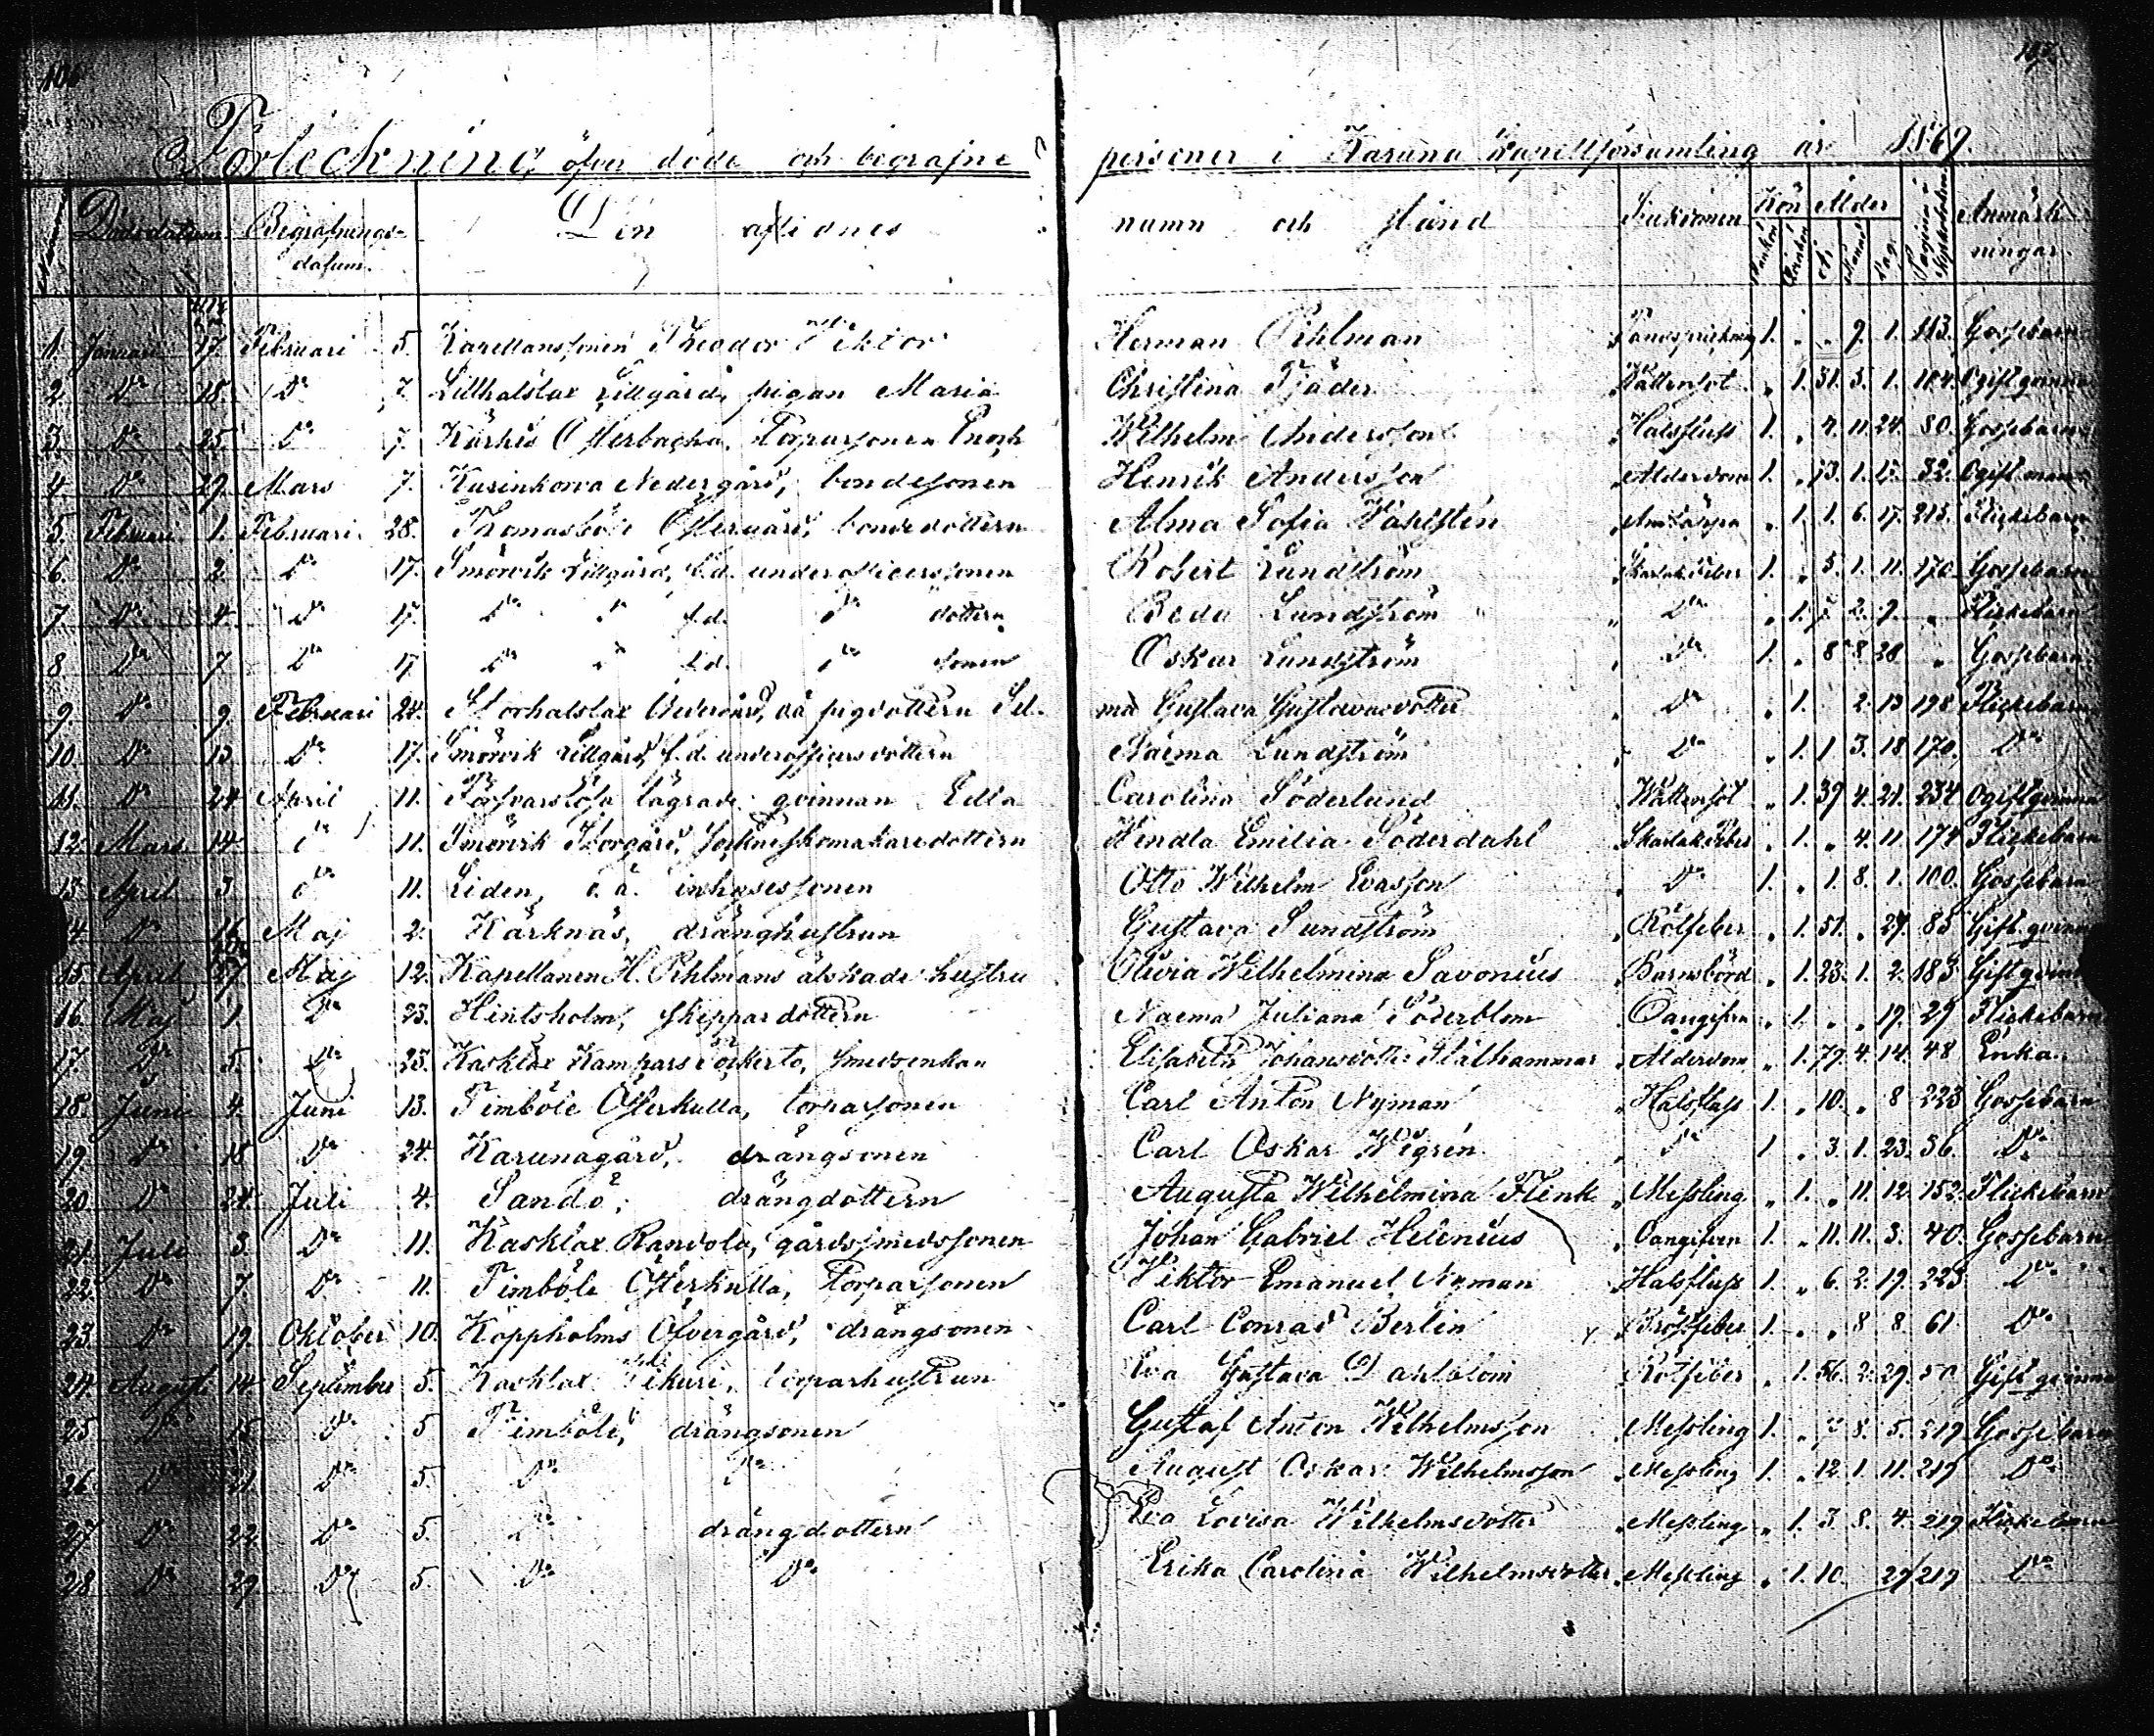 106 107.
Förteckning öfver döde och begrafne personer i Karuna kapellförsamling år 1869.
Dödsdatum. Begrafnings- Den aflidnes namn och stånd Sjukdomen Kön Ålder Anmärk-
datum. Mankön Qvinkön År Månad Dag. ningar.
1. Januari 17. Februari 5. Kapellanssonen Theodor Viktor Herman Pihlman 1. „ „ 9. 1. 183. Gossebarn
2. Do 18. Do 7. Lillhalslax Lillgård, pigan Maria Christina Tjäder Vattensot „ 1. 31. 5. 1. 104. Ogift qvinna
3. Do 25. Do 7. Kärkis Österbacka, Torparsonen Enoch Wilhelm Andersson Halsfluss 1. „ 4. 11. 24. 80. Gossebarn
4. Do 29. Mars 7. Kusinkona Nedergård, bondesonen Henrik Andersson Ålderdom 1. 1. 32. Ogift man
5. Februari 1. Februari 28. Thomasböle Östergård, bondedottern Alma Sofia Wahlstén „ 1. 1. 6. 17. 213. Flickebarn
6. Do 2. Do 17. Smörvik Lillgård, f.d. underofficerssonen Robert Lundström Skarlak.Feber 1. „ 5. 1. 11. 170. Gossebarn
7. Do 4. Do 17. Do Do f.d. Do dottern Beda Lundström „ Do „ 1. 2. 9. „ Flickebarn
8 Do 7 Do 17 Do Do f.d. Do sonen Oskar Lundström „ Do 1. „ 8 8. 28 „ Gossebarn
9. Do 9. Februari 24. Storhalslax Nedergård, oä pigdottern Selma Gustava Gustavasdotter „ Do „ 1. 2. 13 198 Flickebarn
10. Do 13 Do 17. Smörvik Lillgård, f.d. underofficersdottern Naëma Lundström „ Do „ 1. 1 3. 18 170. Do
11. Do 24 April 11. Försvarslösa lägrade qvinnan Edla Carolina Söderlund Wattensot „ 1. 39 4. 21. 234 Ogift qvinna
12. Mars 14. Do 11. Smörvik Storgård, Sockneskomakaredottern Hendla Emilia Söderdahl Skarlak.Feber „ 1. „ 4. 11. 174 Flickebarn
13 April 3. Do 11. Liden, o.ä. inhysessonen Otto Wilhelm Evasson „ Do 1. „ 1. 8. 1. 100. Gossebarn
14 Do 16 Maj 2. Kärknäs, dränghustrun Gustava Sundström „ Rötfeber „ 1. 51. „ 27. 85 Gift qvinna
15. April Maj 12. Kapellanen H. Pihlmans älskade hustru Olivia Wilhelmina Savonius „ Barnsbörd „ 1. 23. 1. 2. 183. Gift qvinna
16. Maj 1. Do 23. Hintsholm, skeppardottern Naema Juliana Söderblom „ Oangifven „ 1. „ „ 19. 29 Flickebarn
17. Do 5. Do 23. Kasklax Kampars Sockerto, smedsenkan Elisabeth Johansdotter Stålhammar „ Ålderdom „ 1. 79. 4. 14. 48 Enka.
18. Juni 4. Juni 13. Timböle Österkulla, torparsonen Carl Anton Nyman „ Halsfluss 1. „ 10. „ 8 223 Gossebarn
19 Do 18 Do 24. Karunagård, drängsonen Carl Oskar Wigrén „ Do 1 „ 3. 1. 23. 56. Do
20. Do 24. Juli 4. Sandö, drängdottern Augusta Wilhelmina Flink „ Messling „ 1. „ 11. 12. 152. Flickebarn
21. Juli 3. Do 11. Kasklax Randola, gårdssmedssonen Johan Gabriel Helenius „ Oangifven 1. „ 11. 11. 3. 40. Gossebarn
22. Do 7. Do 11. Timböle Österkulla, Torparsonen Viktor Emanuel Nyman „ Halsfluss 1. „ 6. 2. 19. 223 Do
23. Do 19. Oktober 10. Koppholms Öfvergård, drängsonen Carl Conrad Berlin „ Bröstfeber 1. „ „ 8 8. 61 Do
24. Augusti 14 September 5. Kasklax torparhustrun Eva Gustava Dahlblom „ Rötfeber „ 1. 56. 2. 29. 50 Gift qvinna
25 Do 15. Do 5 Timböle, drängsonen Gustaf Anton Wilhelmsson „ Messling 1. „ 8. 5. 219 Gossebarn
26. Do 21. Do 5. Do Do August Oskar Wilhelmsson „ Messling 1. „ 12. 1. 11. 219 Do
27 Do 22. Do 5. Do drängdottern Eva Lovisa Wilhelmsdotter „ Messling „ 1. 3. 8. 4. 219 Flickebarn
28 Do 29 Do 5. Do Do Erika Carolina Wilhelmsdotter „ Messling „ 1. 10. 27 219 Do